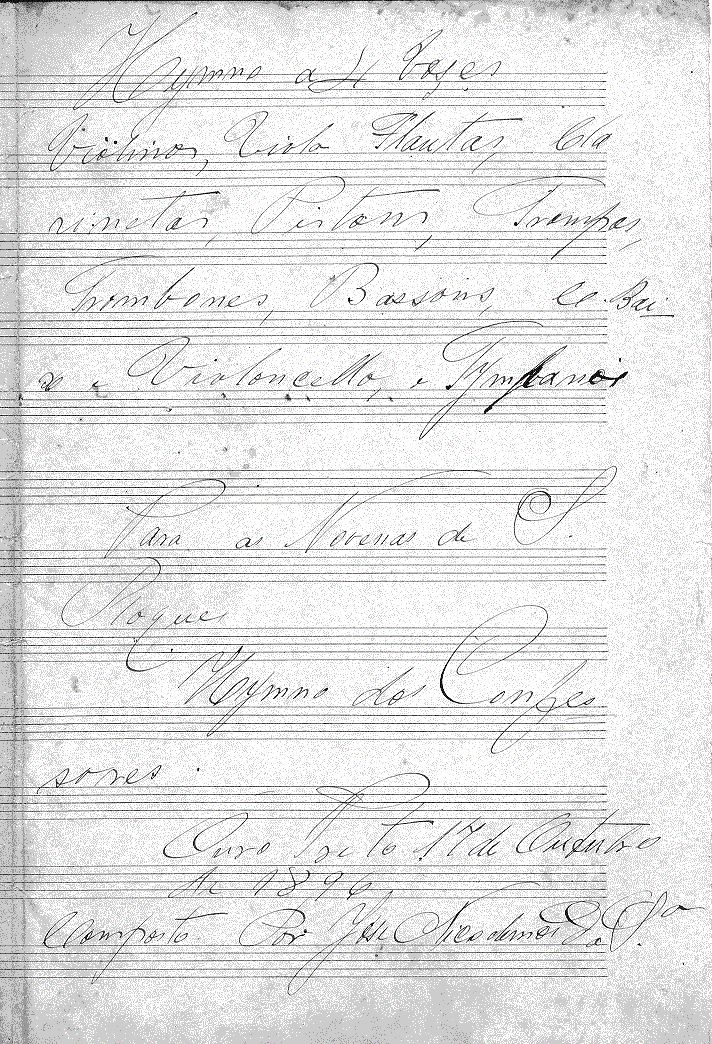 Hymno a 4 Vozes
Violinos, Viola Flautas, Cla
rinetas, Pistons, Trompas,
Trombones, Bassons, e Bai
xo e Violoncello, e Tympanos
Para as Novenas de S.
Roque
Hymno dos Confes
sores.
Ouro Preto 17 de Outubro
de 1896
Composto Por José Nicodemos da S.ª